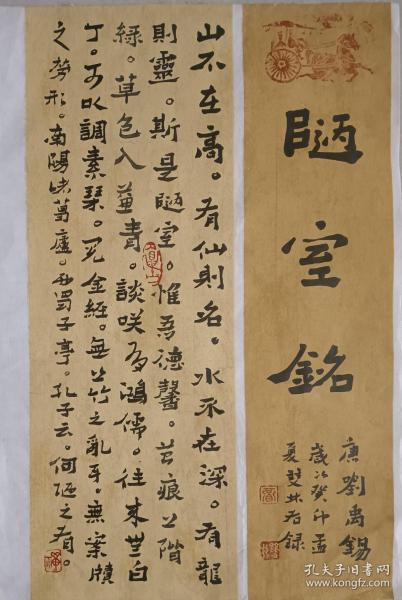 陋室銘
唐劉禹錫
歲次癸卯孟
夏雙林居錄
山不在高。有仙則名。水不在深。有龍
則靈。斯是陋室。惟吾德馨。苔痕上階
綠。草色入簾青。談咲有鴻儒。往来無白
丁。可以調素琴。閱金經。無丝竹之亂耳。無案牘
之勞形。南陽诸葛廬。西蜀子亭。孔子云。何陋之有。
孔夫子旧书网
www.kongfz.com